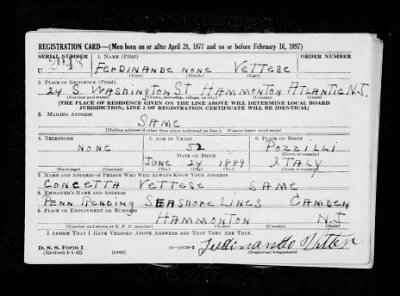 REGISTRATION CARD—(Men born on or after April 28, 1877 and on or before February 16, 1897)
SERIAL NUMBER 1. NAME (Print) ORDER NUMBER
U FERDINANDE NONE VETTESE
(First) (Middle) (Last)
2. PLACE OF RESIDENCE (Print)
24 S. WASHINGTON ST HAMMONTON ATLANTIC N.J.
(Number and street) (Town, township, village, or city) (County) (State)
[THE PLACE OF RESIDENCE GIVEN ON THE LINE ABOVE WILL DETERMINE LOCAL BOARD
JURISDICTION; LINE 2 OF REGISTRATION CERTIFICATE WILL BE IDENTICAL]
3. MAILING ADDRESS
SAME
[Mailing address if other than place indicated on line 2. If same insert word same]
4. TELEPHONE 5. AGE IN YEARS 6. PLACE OF BIRTH
NONE 52 POZZILLI
DATE OF BIRTH
JUNE 24 1889 ITALY
(Mo.) (Day) (Yr.)
7. NAME AND ADDRESS OF PERSON WHO WILL ALWAYS KNOW YOUR ADDRESS
CONCETTA VETTESE SAME
8. EMPLOYER'S NAME AND ADDRESS
PENN READING SEASHORE LINES CAMDEN
9. PLACE OF EMPLOYMENT OR BUSINESS
HAMMONTON N.J
(Number and street or R. F. D. number) (Town) (County) (State)
I AFFIRM THAT I HAVE VERIFIED ABOVE ANSWERS AND THAT THEY ARE TRUE.
D. S. S. Form 1
(Revised 4-1-42) (over) (Registrant's signature)